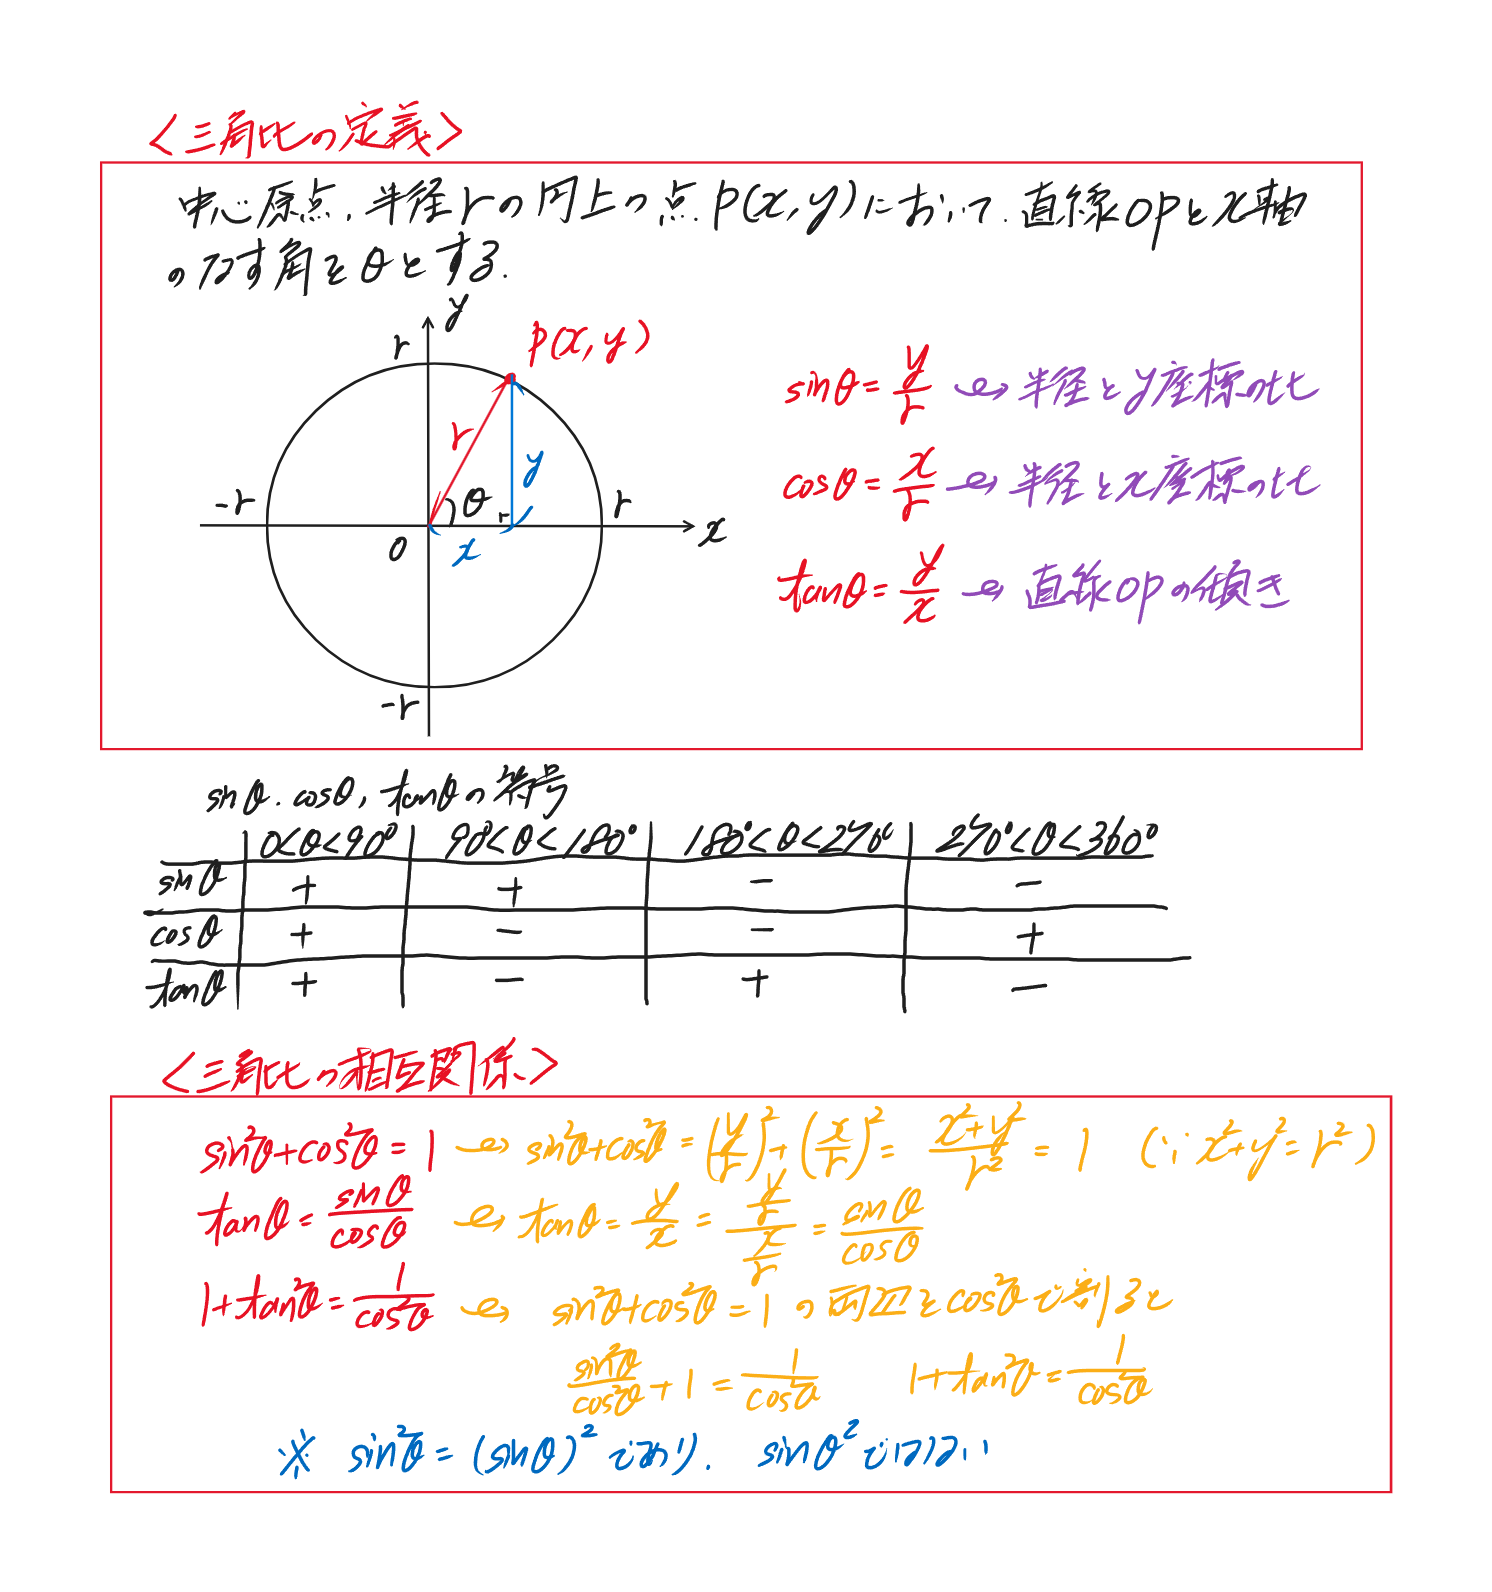 <三角比の定義>
中心原点、半径rの円上の点P(x,y)において、直線OPとx軸
のなす角をθとする.
y
r
P(x,y)
r
y
θ
-r
r
x
O
x
-r
sinθ=y/r → 半径とy座標の比
cosθ=x/r → 半径とx座標の比
tanθ=y/x → 直線OPの傾き
sinθ, cosθ, tanθの符号
0<θ<90° 90°<θ<180° 180°<θ<270° 270°<θ<360°
sinθ + + - -
cosθ + - - +
tanθ + - + -
<三角比の相互関係>
sin²θ+cos²θ=1 → sin²θ+cos²θ=(y/r)²+(x/r)²=(x²+y²)/r²=1 (∵ x²+y²=r²)
tanθ=sinθ/cosθ → tanθ=y/x=(y/r)/(x/r)=sinθ/cosθ
1+tan²θ=1/cos²θ → sin²θ+cos²θ=1の両辺をcos²θで割ると
sin²θ/cos²θ+1=1/cos²θ 1+tan²θ=1/cos²θ
※ sin²θ=(sinθ)²であり、sinθ²ではない